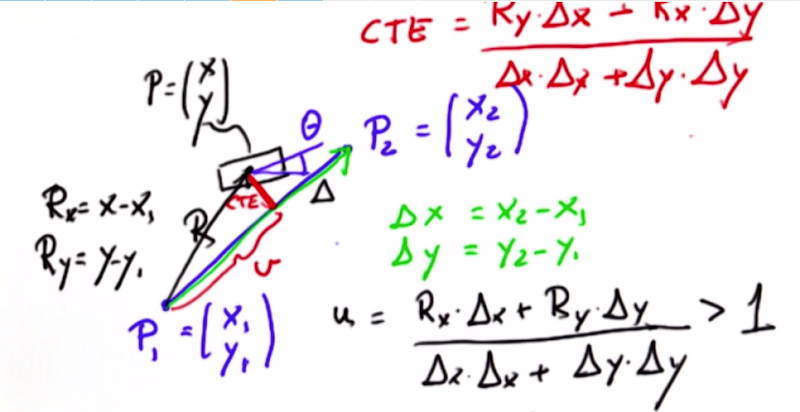 CTE = Ry·Δx - Rx·Δy
Δx·Δx + Δy·Δy
P = (x
y)
θ
P2 = (x2
y2)
Rx = x-x1
Ry = y-y1
R
CTE
Δ
u
Δx = x2-x1
Δy = y2-y1
P1 = (x1
y1)
u = Rx·Δx + Ry·Δy > 1
Δx·Δx + Δy·Δy